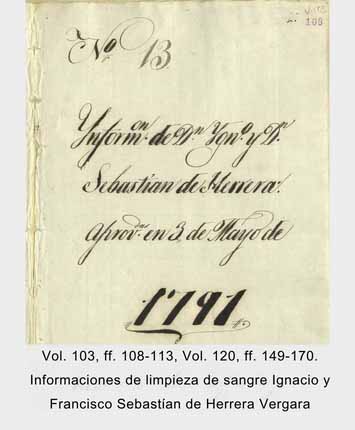 Nº 13
108
Ynform.on de D.n Ygn.o y D.n
Sebastian de Herrera.
Aprov.da en 3, de Mayo de
1791
Vol. 103, ff. 108-113, Vol. 120, ff. 149-170.
Informaciones de limpieza de sangre Ignacio y
Francisco Sebastían de Herrera Vergara